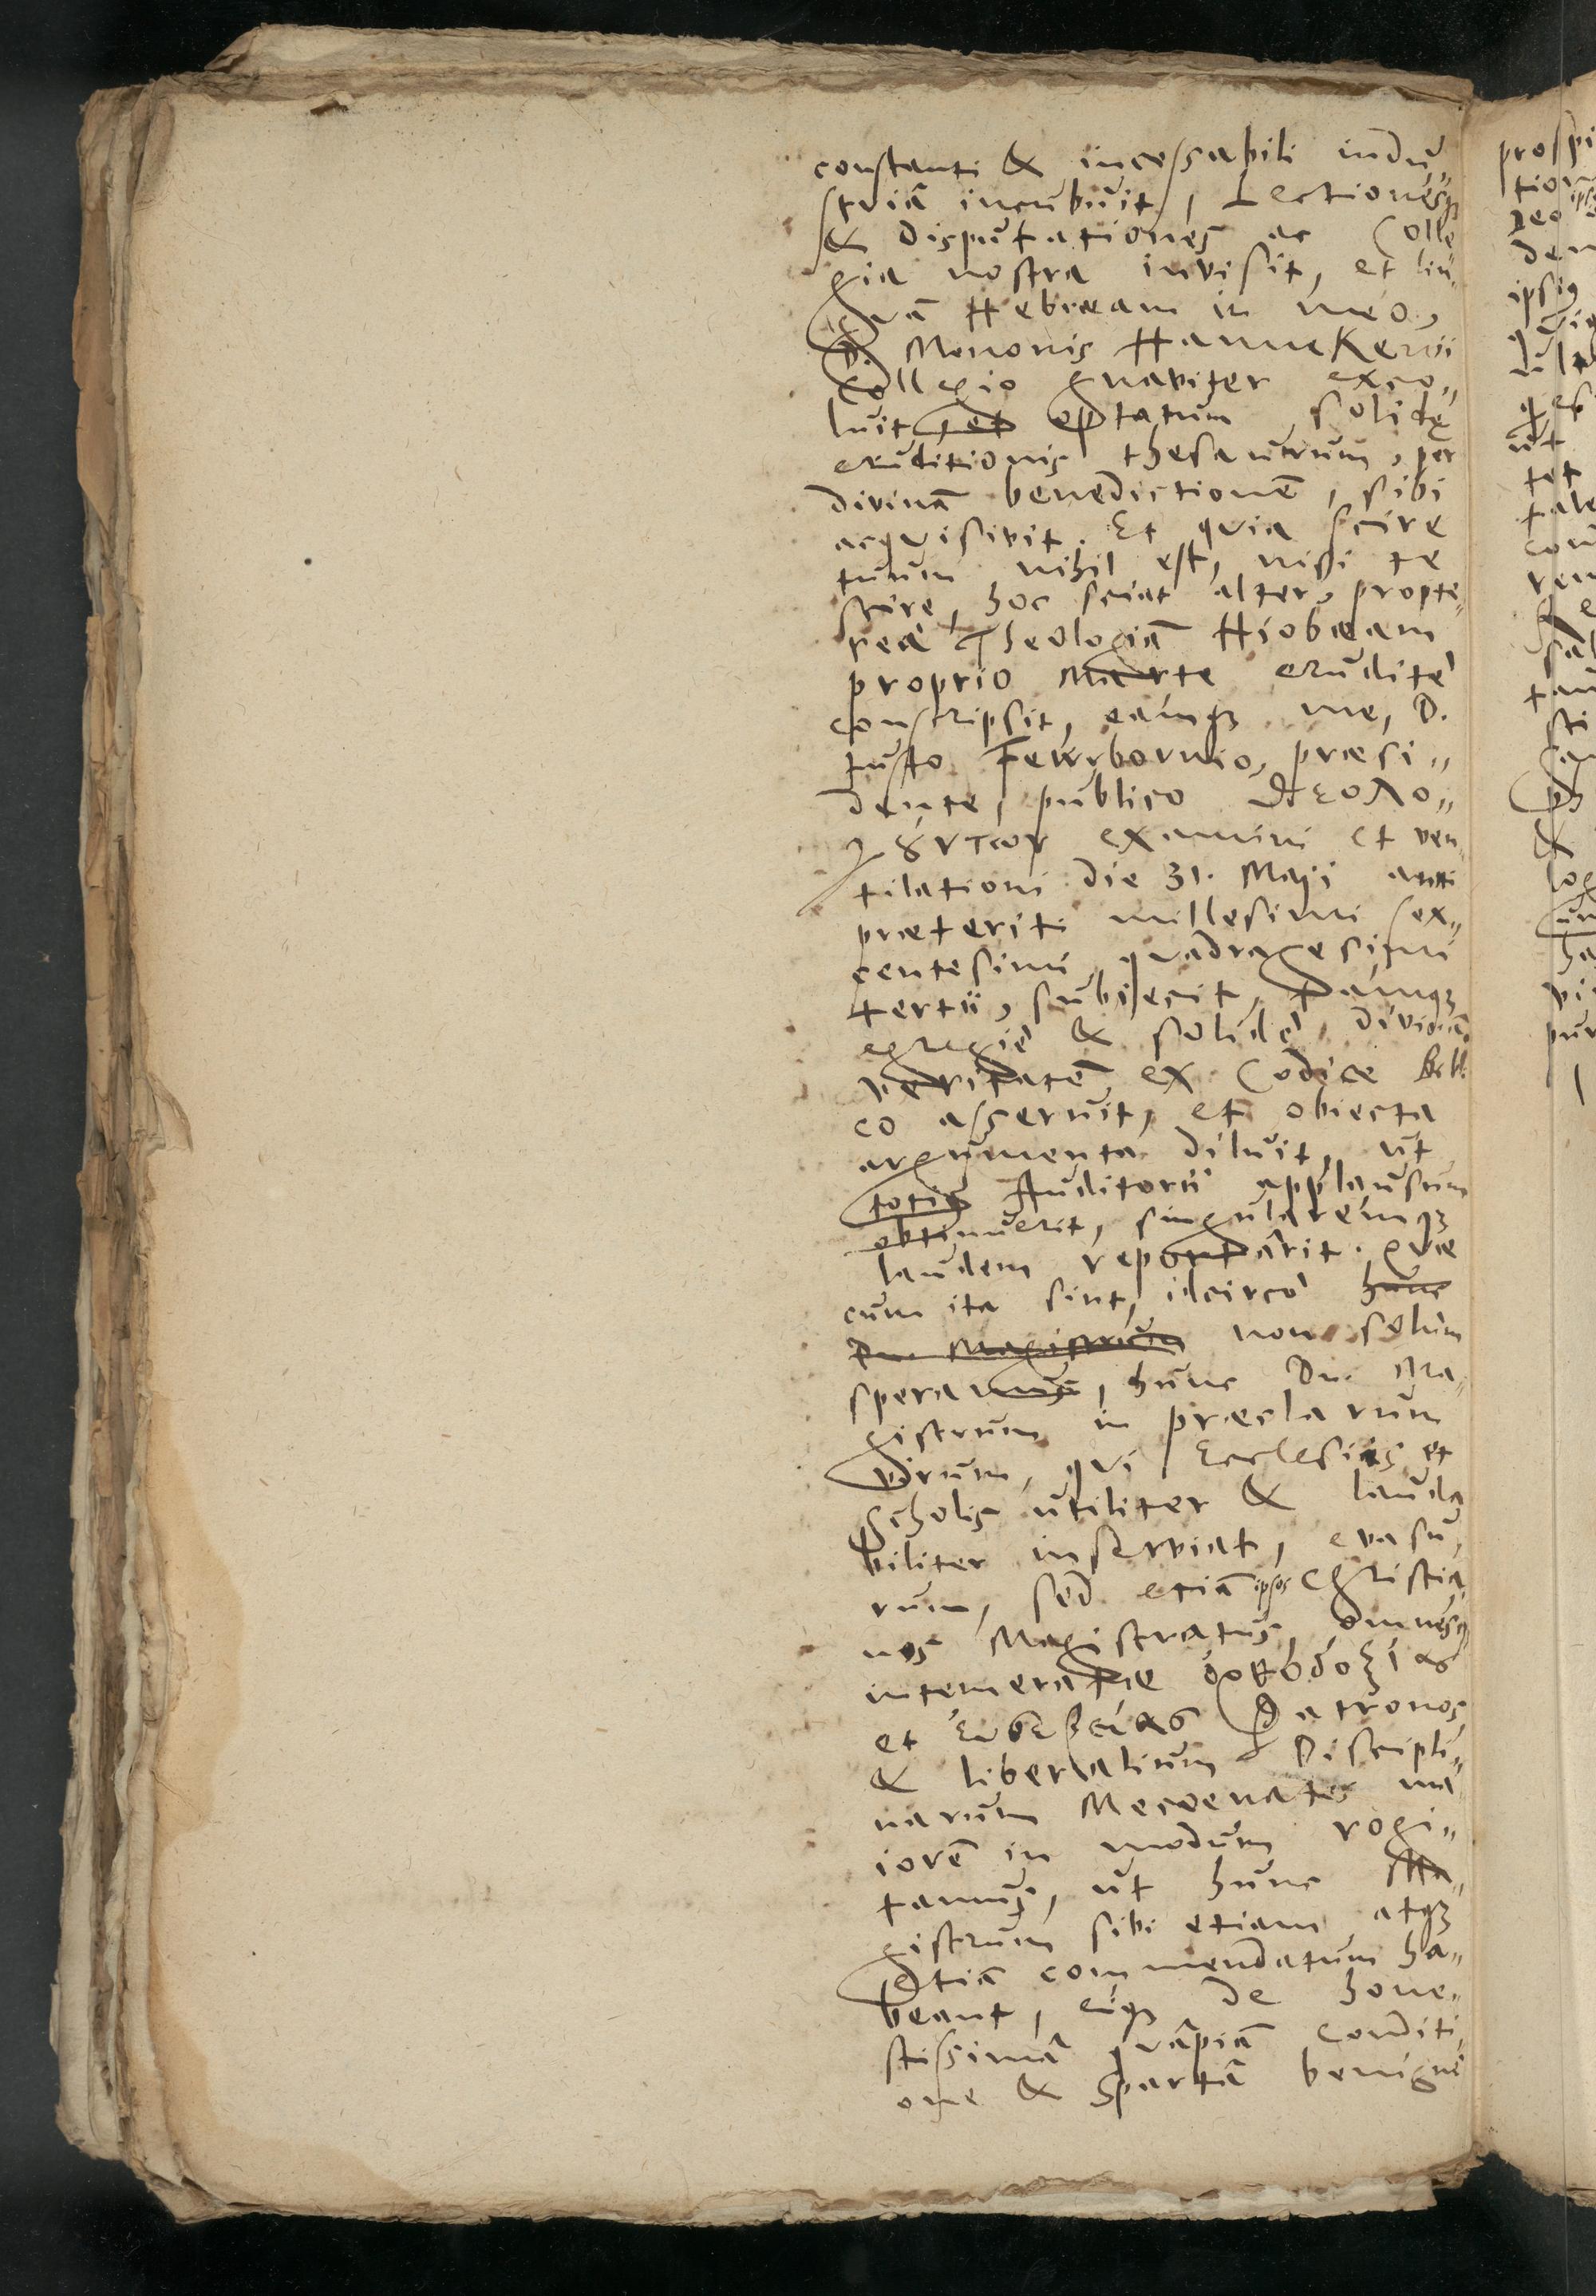 constanti & incessabili indu„
striâ incubuit, Lectionesq;
& Disputationes ac Colle
gia nostra invisit, et lin„
gvā Hebræam in meo,
D. Menonis Hannekenii
Collegio gnaviter exco„
luit, et optatum solidę
eruditionis thesaurum, per
divinā benedictionē, sibi
acqvisivit. Et qvia scire
tuum nihil est, nisi te
scire, hoc sciat alter, propte„
reà Theologiā Hiobæam
proprio Marte eruditè
conscripsit, eamq; me, D.
Justo Fewrbornio, præsi„
dente, publico θεολο„
γȣντων examini et ven„
tilationi die 31. Maji anni
præteriti millesimi sex„
centesimi qvadragesimi
tertii, subjecit, tamq;
egregiè & solidè, divinā
veritatē ex Codice Bibli
co asseruit, et obiecta
argumenta diluit, ut
totiq Auditorii applausum
obtinuerit, singularemq;
laudem reportârit. Qvæ
cum ita sint, idcircò hunc
Dn. Magistrum non solùm
speramus, hunc Dn. Ma„
gistrum in præclarum
virum, qvi Ecclesiis et
Scholis utiliter & lauda
biliter inserviat, evasu„
rum, sed etiā ipsos Christia„
nos Magistratus, omnesq;
intemeratæ ὀρθοδοξίας
et εὐσεβείας Patronos
& liberalium Discipli„
narum Mecœnates ma
iorē in modum rogi„
tamus, ut hunc Ma„
gistrum sibi etiam atq;
etiā commendatum ha„
beant, eiq; de hone„
stissimâ qvâpiā conditi„
one & Spartâ benignè